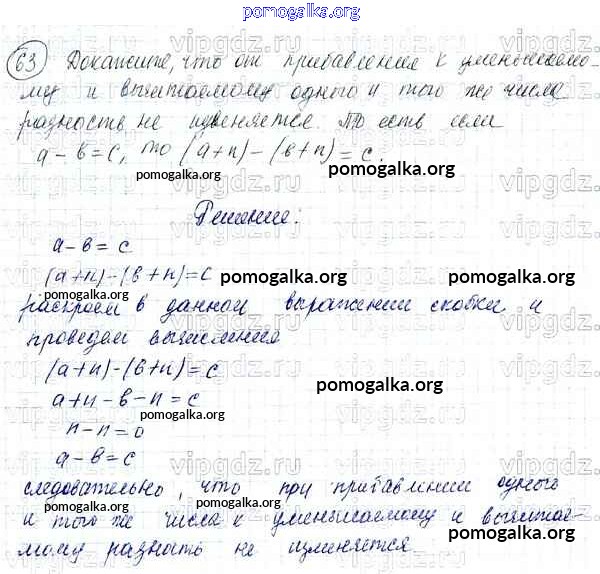 pomogalka.org
63 Докажите, что от прибавления к уменьшаемо-
му и вычитаемому одного и того же числа
разность не изменяется. То есть если
а - в = с, то (а+n) - (в+n) = с.
pomogalka.org pomogalka.org
Решение:
а - в = с
(а+n) - (в+n) = с pomogalka.org pomogalka.org
раскроем в данном выражении скобки и
проведем вычисления
(а+n) - (в+n) = с
pomogalka.org
а+n - в - n = с
n - n = 0
а - в = с
следовательно, что при прибавлении одного
pomogalka.org
и того же числа к уменьшаемому и вычитае-
мому разность не изменяется.
pomogalka.org